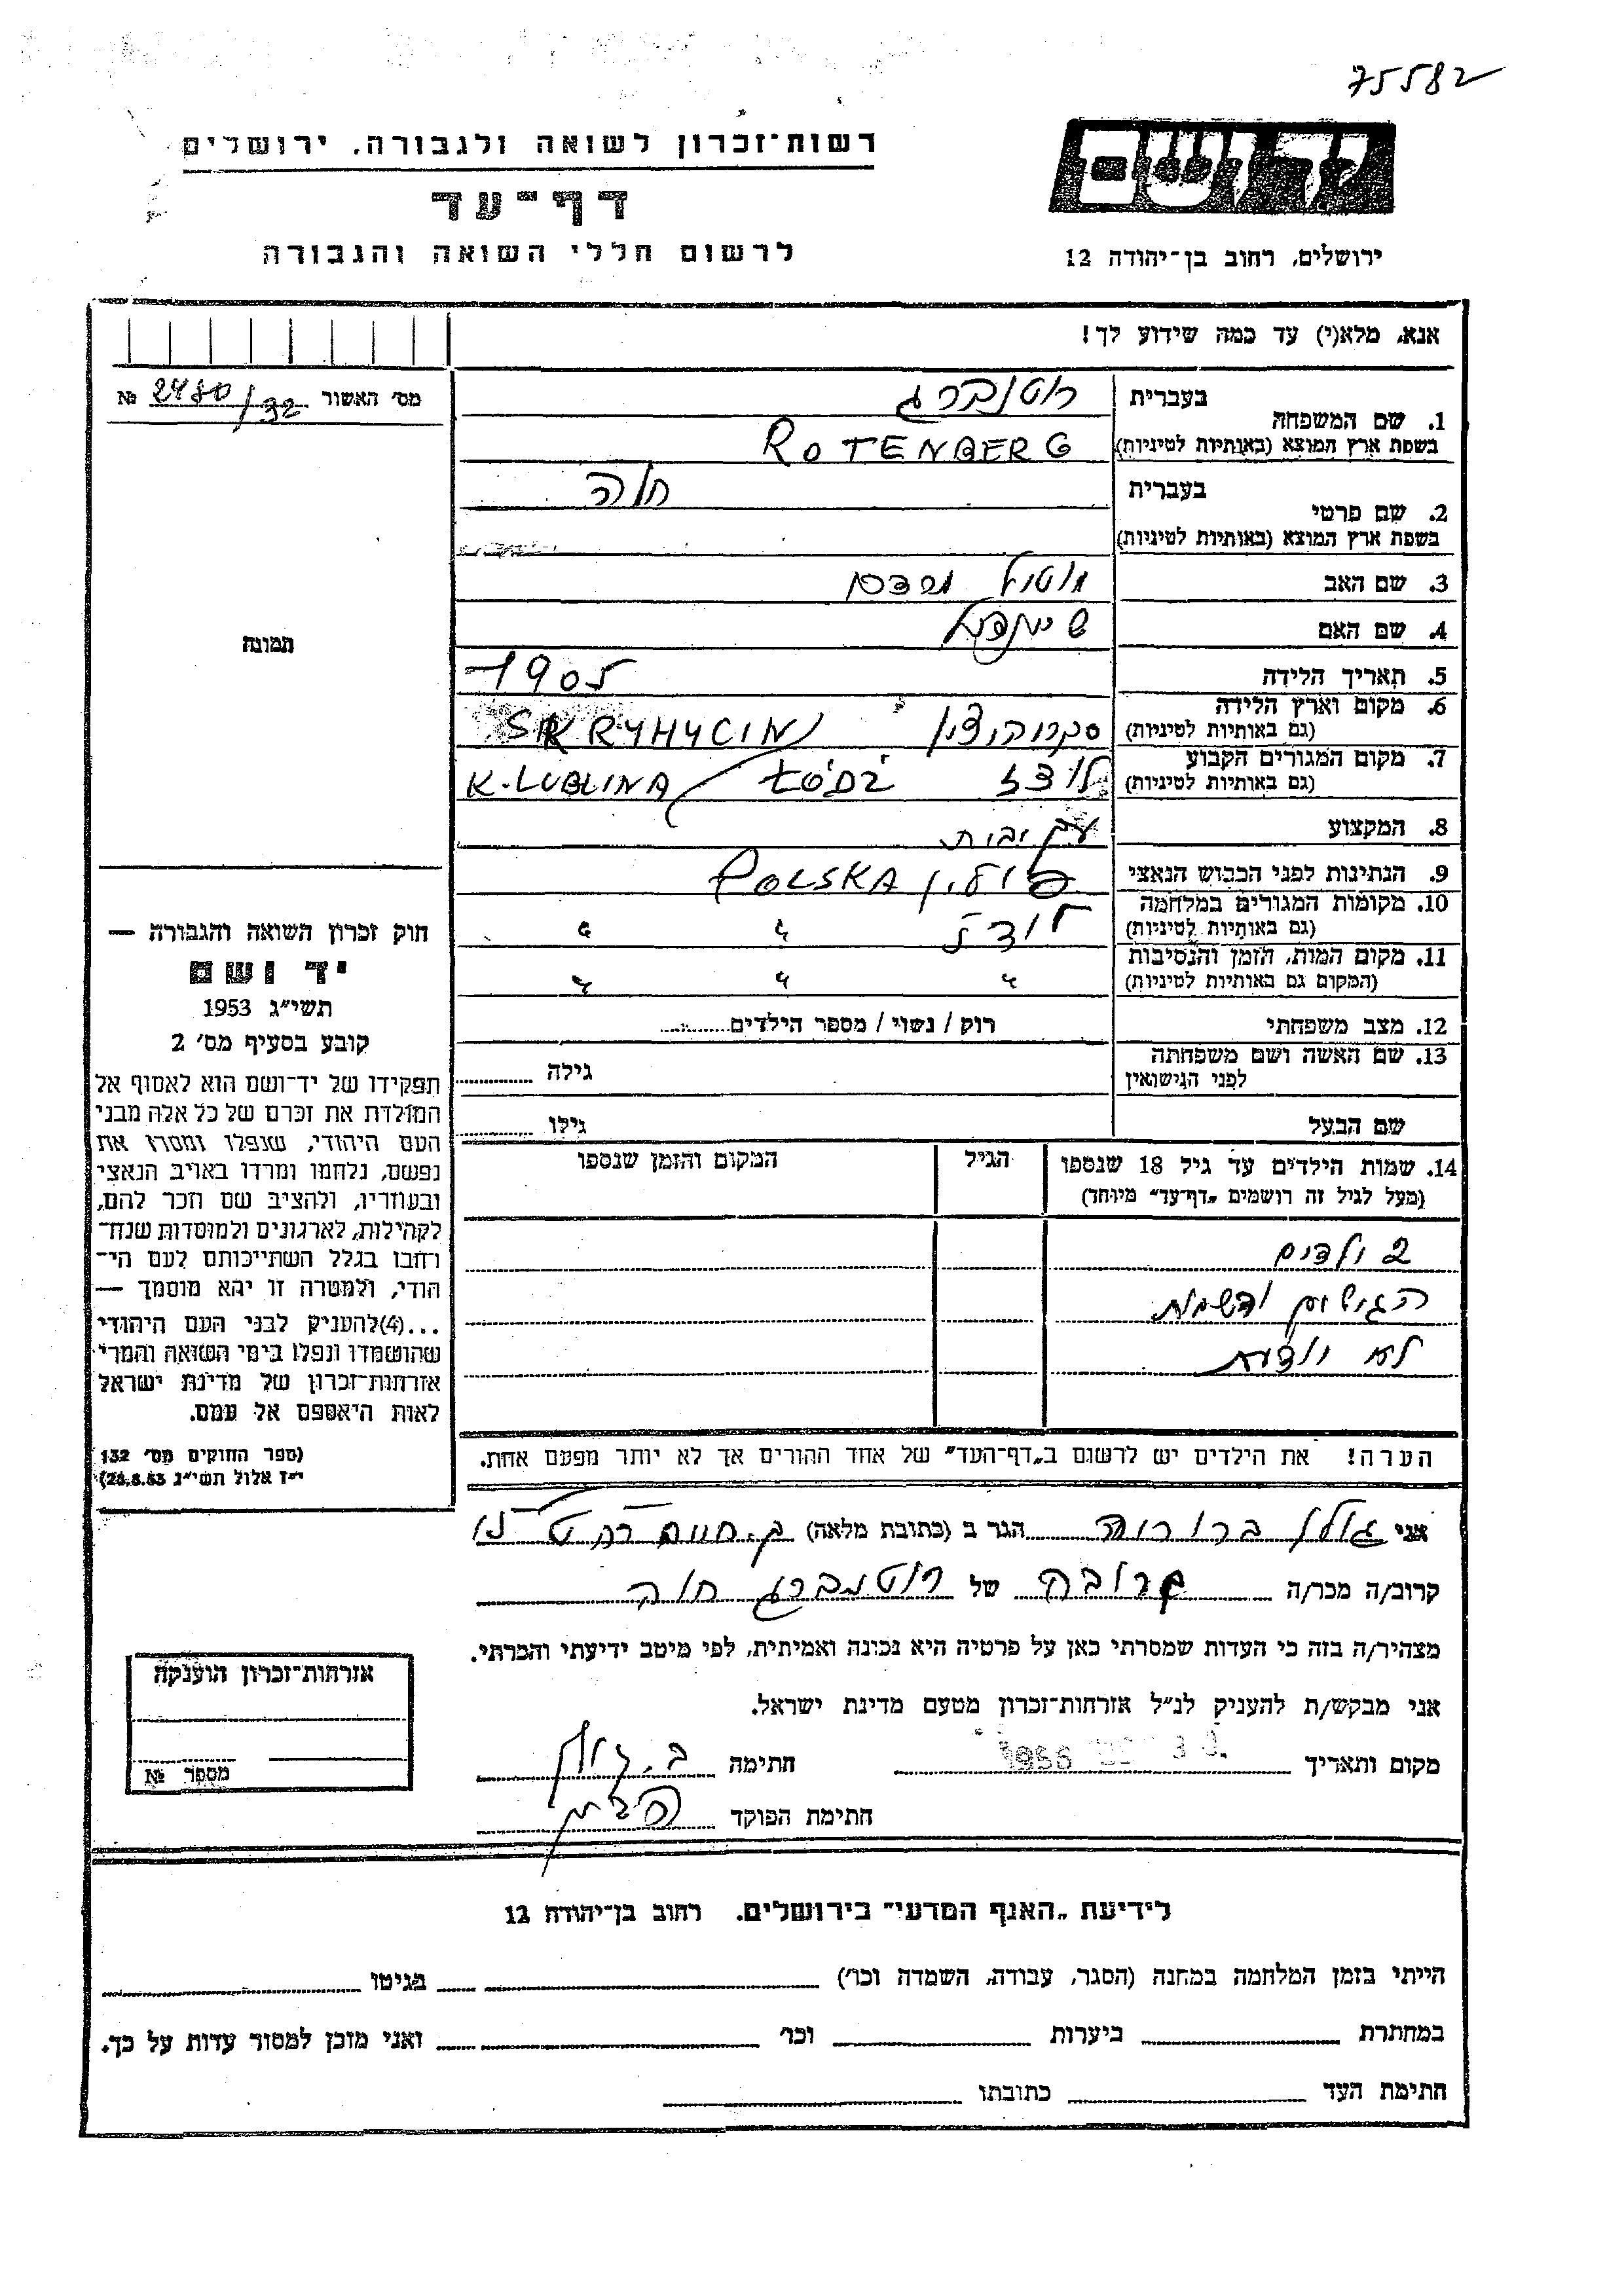 75582
רשות־זכרון לשואה ולגבורה, ירושלים
יד ושם
דף־עד
לרשום חללי השואה והגבורה
ירושלים, רחוב בן־יהודה 12
אנא, מלא(י) עד כמה שידוע לך!
מס׳ האשור 2480/32 №
1. שם המשפחה
בעברית רוטנברג
בשפת ארץ המוצא (באותיות לטיניות) ROTENBERG
2. שם פרטי
בעברית חוה
בשפת ארץ המוצא (באותיות לטיניות)
3. שם האב מוטל
4. שם האם
5. תאריך הלידה 1905
6. מקום וארץ הלידה
(גם באותיות לטיניות) SKRYHYCIN
7. מקום המגורים הקבוע
(גם באותיות לטיניות) לודז ŁÓDŹ / K. LUBLINA
8. המקצוע עקרבית
9. הנתינות לפני הכבוש הנאצי פולין POLSKA
10. מקומות המגורים במלחמה
(גם באותיות לטיניות) לודז " "
11. מקום המות, הזמן והנסיבות
(המקום גם באותיות לטיניות) " " "
12. מצב משפחתי רוק / נשוי / מספר הילדים
13. שם האשה ושם משפחתה
לפני הנישואין גילה
שם הבעל גילו
14. שמות הילדים עד גיל 18 שנספו
(מעל לגיל זה רושמים „דף־עד" מיוחד)
הגיל
המקום והזמן שנספו
2 ילדים
הגילים והשמות
לא ידוע
הערה! את הילדים יש לרשום ב„דף־העד" של אחד ההורים אך לא יותר מפעם אחת.
תמונה
חוק זכרון השואה והגבורה —
יד ושם
תשי״ג 1953
קובע בסעיף מס׳ 2
תפקידו של יד־ושם הוא לאסוף אל
המולדת את זכרם של כל אלה מבני
העם היהודי, שנפלו ומסרו את
נפשם, נלחמו ומרדו באויב הנאצי
ובעוזריו, ולהציב שם וזכר להם,
לקהילות, לארגונים ולמוסדות שנח־
רחבו בגלל השתייכותם לעם הי־
הודי, ולמטרה זו יהא מוסמך —
...(4) להעניק לבני העם היהודי
שהושמדו ונפלו בימי השואה והמרי
אזרחות־זכרון של מדינת ישראל
לאות היאספם אל עמם.
(ספר החוקים מס׳ 132
י״ז אלול תשי״ג 28.8.53)
אני גולן ברוריה הגר ב (כתובת מלאה) ק. חיים
קרוב/ה מכר/ה קרובה של רוטנברג חוה
מצהיר/ה בזה כי העדות שמסרתי כאן על פרטיה היא נכונה ואמיתית, לפי מיטב ידיעתי והכרתי.
אני מבקש/ת להעניק לנ״ל אזרחות־זכרון מטעם מדינת ישראל.
מקום ותאריך 1956 חתימה ב. גולן
חתימת הפוקד
אזרחות־זכרון הוענקה
מספר №
לידיעת „האגף המדעי" בירושלים, רחוב בן־יהודה 12
הייתי בזמן המלחמה במחנה (הסגר, עבודה, השמדה וכו׳) בגיטו
במחתרת ביערות וכו׳ ואני מוכן למסור עדות על כך.
חתימת העד כתובתו